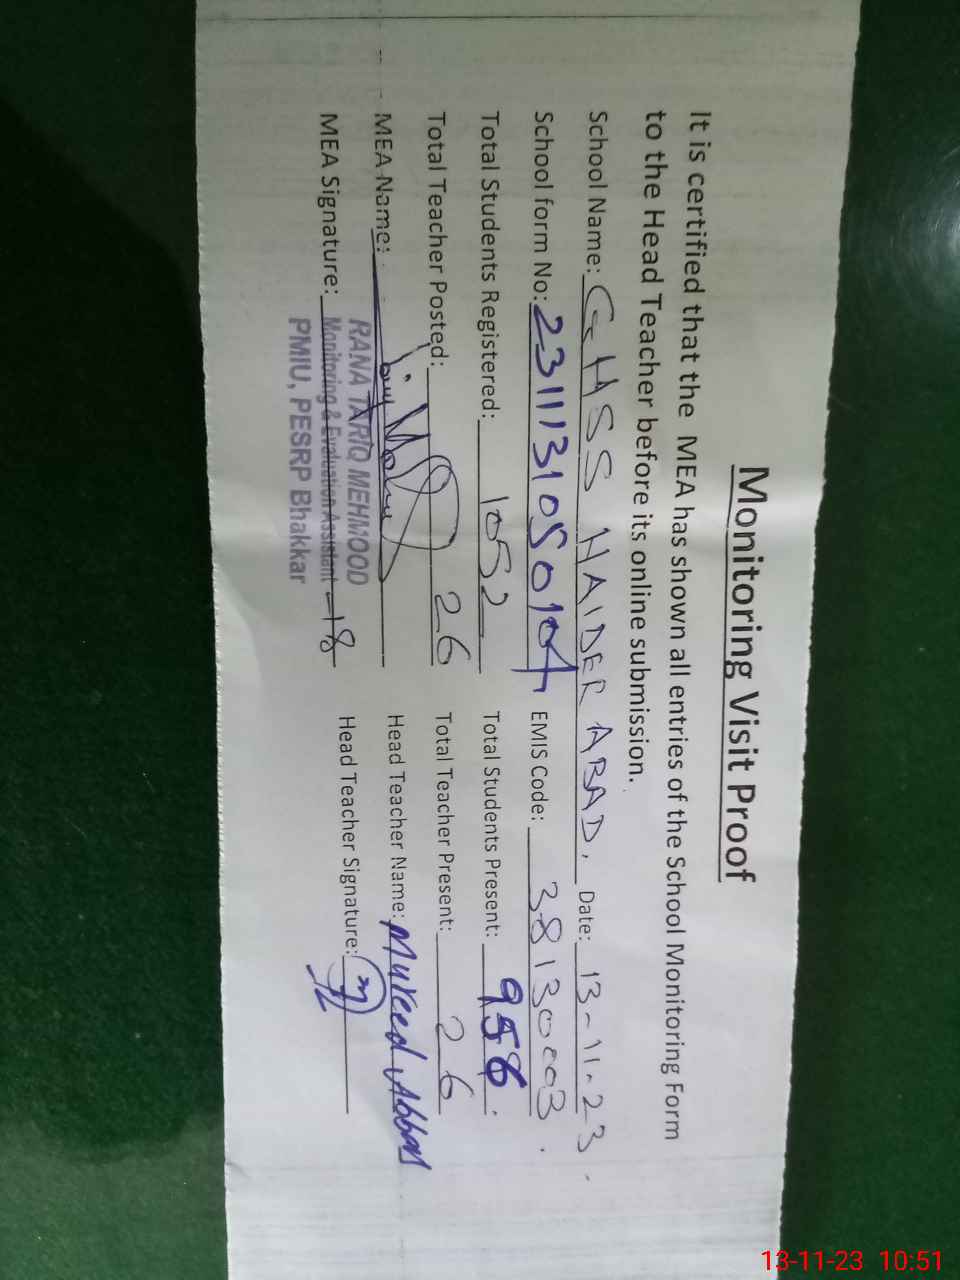 Monitoring Visit Proof
It is certified that the MEA has shown all entries of the School Monitoring Form
to the Head Teacher before its online submission.
School Name: GHSS HAIDER ABAD. Date: 13-11-23.
School form No: 2311131050104 EMIS Code: 38130003.
Total Students Registered: 1052 Total Students Present: 958.
Total Teacher Posted: 26 Total Teacher Present: 26
MEA Name: Head Teacher Name: Mureed Abbas
MEA Signature: 18 Head Teacher Signature:
RANA TARIQ MEHMOOD
Monitoring & Evaluation Assistant
PMIU, PESRP Bhakkar
13-11-23 10:51